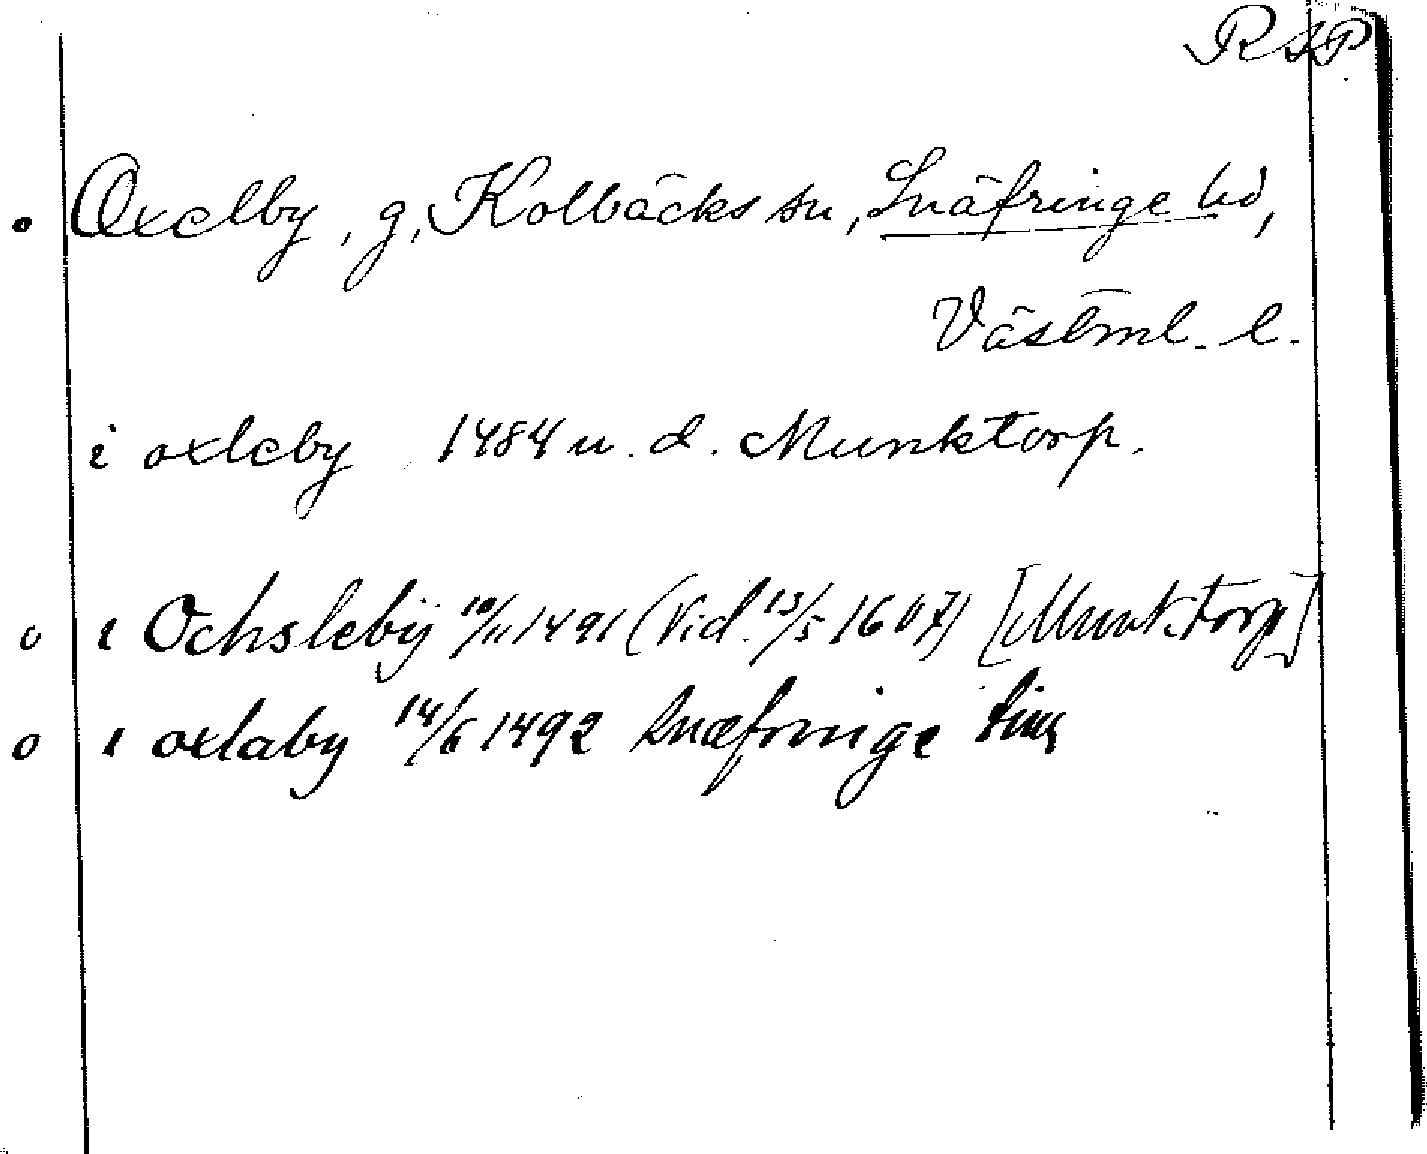 RAP
Oxelby, g, Kolbäcks sn, Snäfringe hd,
Västml. l.
i oxleby 1484 u. d. Munktorp.
i Ochslebÿ 10/11 1491 (Vid. 15/5 1607) [Munktorp]
i oxlaby 14/6 1492 snæfringe